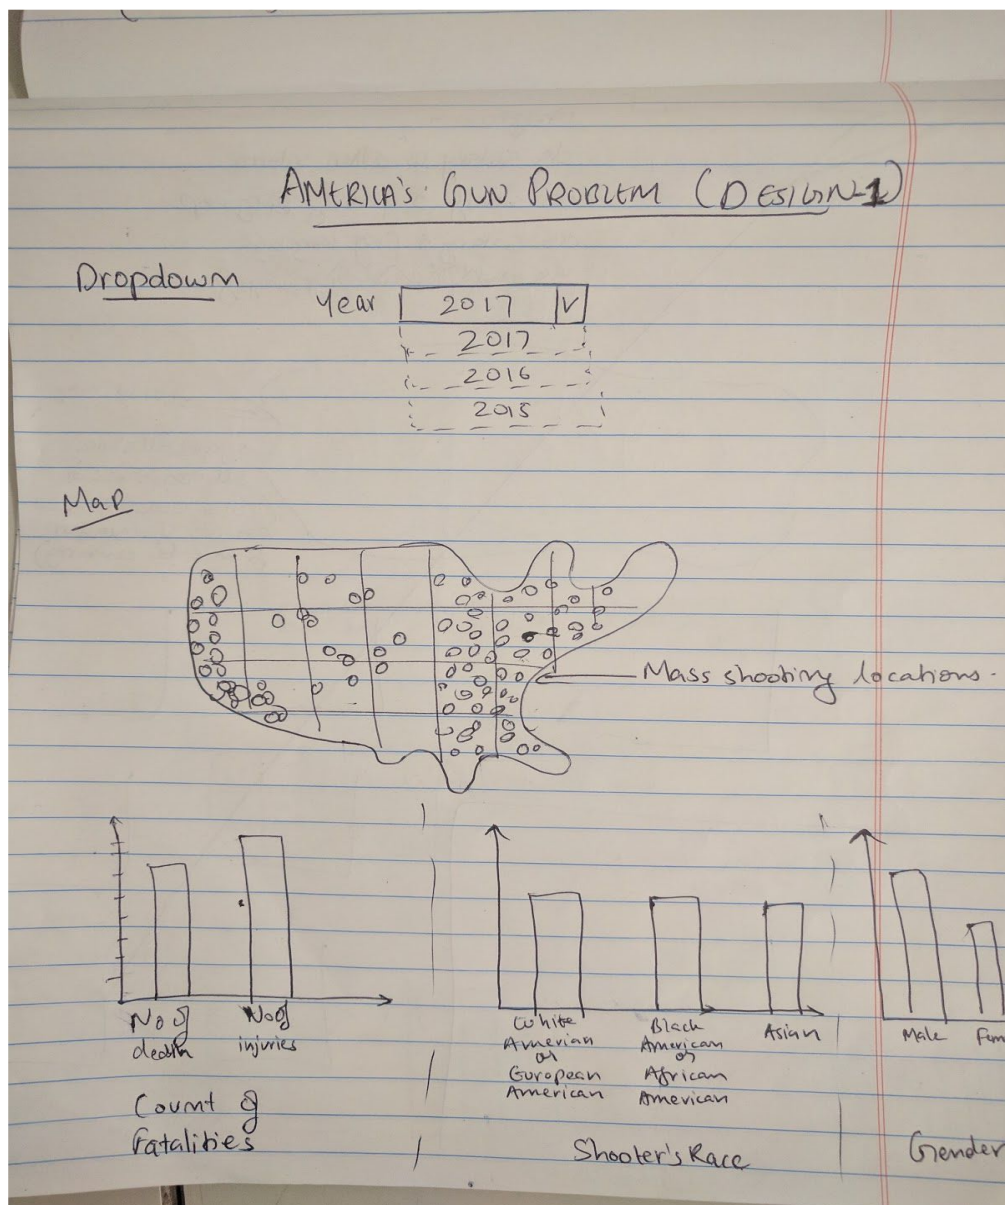 AMERICA'S GUN PROBLEM (DESIGN-1)
Dropdown
Year 2017 V
2017
2016
2015
Map
Mass shooting locations.
No of
death
No of
injuries
Count of
Fatalities
White
Amerian
or
European
American
Black
American
or
African
American
Asian
Shooter's Race
Male
Fem
Gender